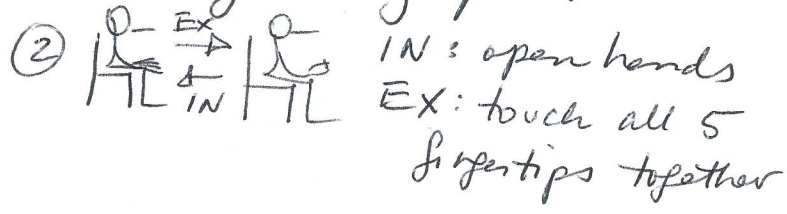 ② EX IN
IN: open hands
EX: touch all 5
fingertips together